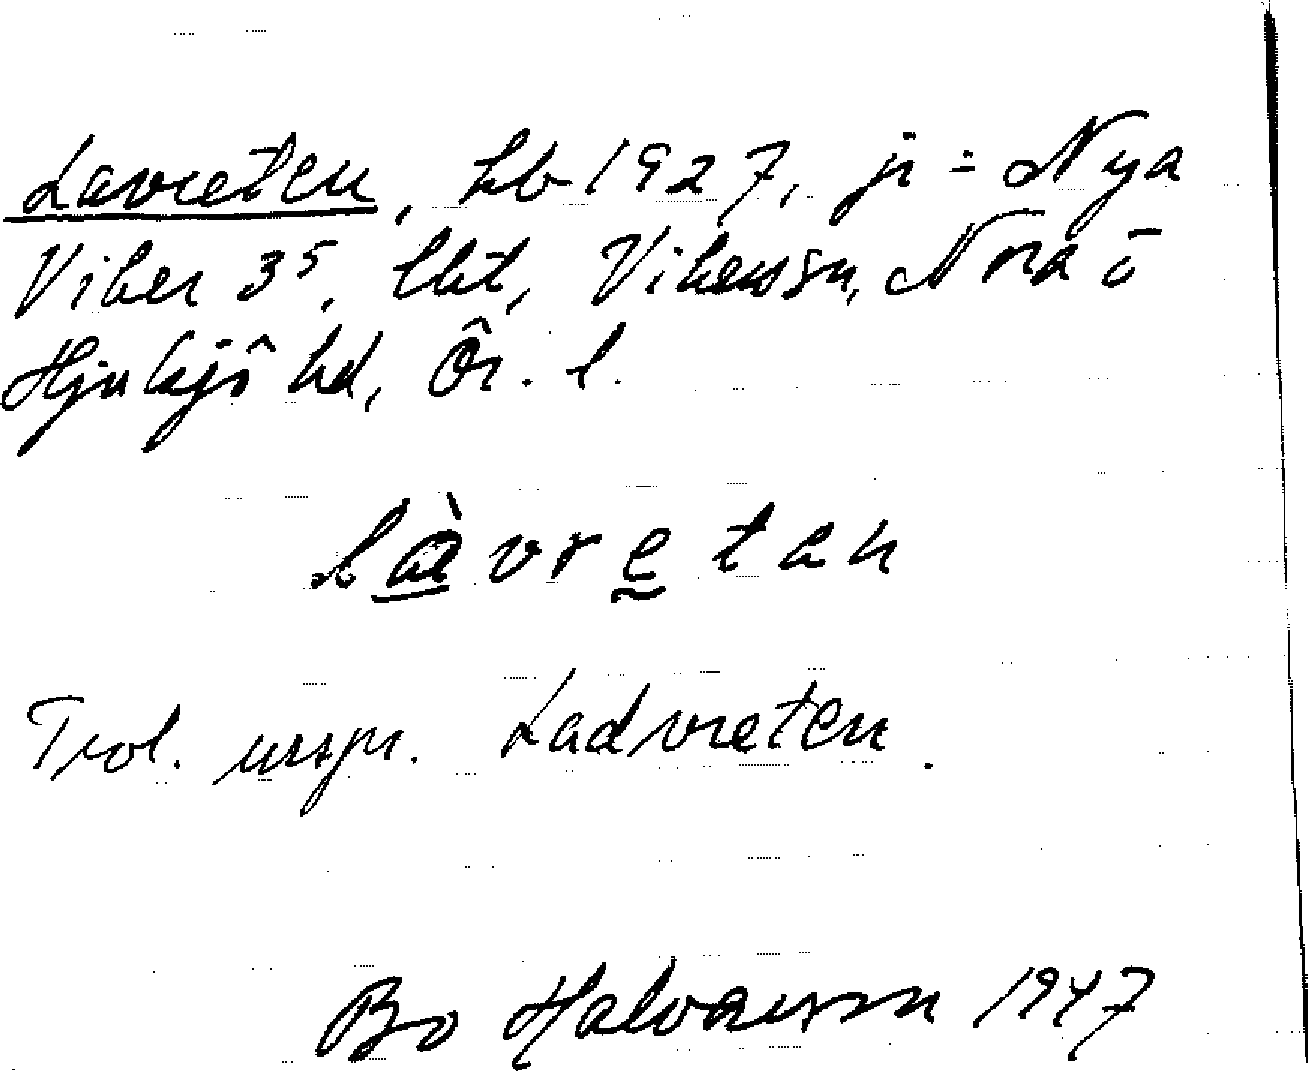 Lavreten, hb 1927, ji = Nya
Viker 3⁵, lht, Vikers sn, Nora ō
Hjulsjö hd, Ör. l.
làvretan
Trol. urspr. Ladvreten.
Bo Halvarsson 1947